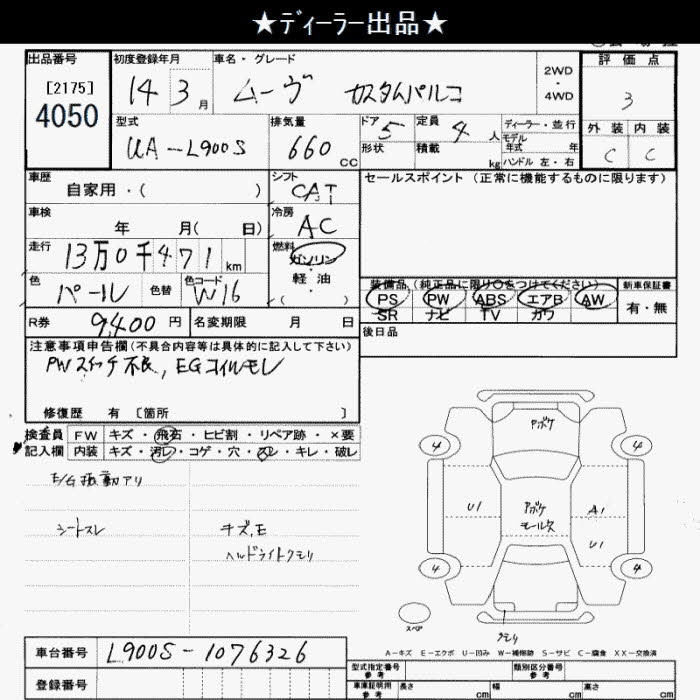 ★ディーラー出品★
出品番号
[2175]
4050
初度登録年月
14 3 月
車名・グレード
ムーヴ カスタムパルコ
2WD
・
4WD
評価点
3
外装 内装
C C
型式
UA-L900S
排気量
660 cc
ドア 5
形状
定員 4 人
積載 kg
ディーラー・並行
モデル
年式 年
ハンドル 左・右
車歴
自家用・( )
シフト
CAT
セールスポイント (正常に機能するものに限ります)
車検
年 月( 日)
冷房
AC
走行
13万0千471 km
燃料
ガソリン
・
軽油
・
( )
色
パール
色替
色コード
W16
装備品 (純正品に限り○をつけてください)
PS PW ABS エアB AW
SR ナビ TV カワ
新車保証書
有・無
R券
9,400 円
名変期限 月 日
後日品
注意事項申告欄 (不具合内容等は具体的に記入して下さい)
PWスイッチ不良, EGコイルモレ
修復歴 有 〔箇所 〕
検査員
記入欄
FW キズ・飛石・ヒビ割・リペア跡・×要
内装 キズ・汚レ・コゲ・穴・スレ・キレ・破レ
E/G振動アリ
シートスレ
キズ, E
ヘルドライトクモリ
Pボケ
4 4
U1
Pボケ
モール欠
A1
U1
4 4
スペア
クモリ
A-キズ E-エクボ U-凹み W-補修跡 S-サビ C-腐食 XX-交換済
車台番号
L900S-1076326
登録番号
型式指定番号
参考
類別区分番号
参考
車庫証明用
参考
長さ cm
幅 cm
高さ cm